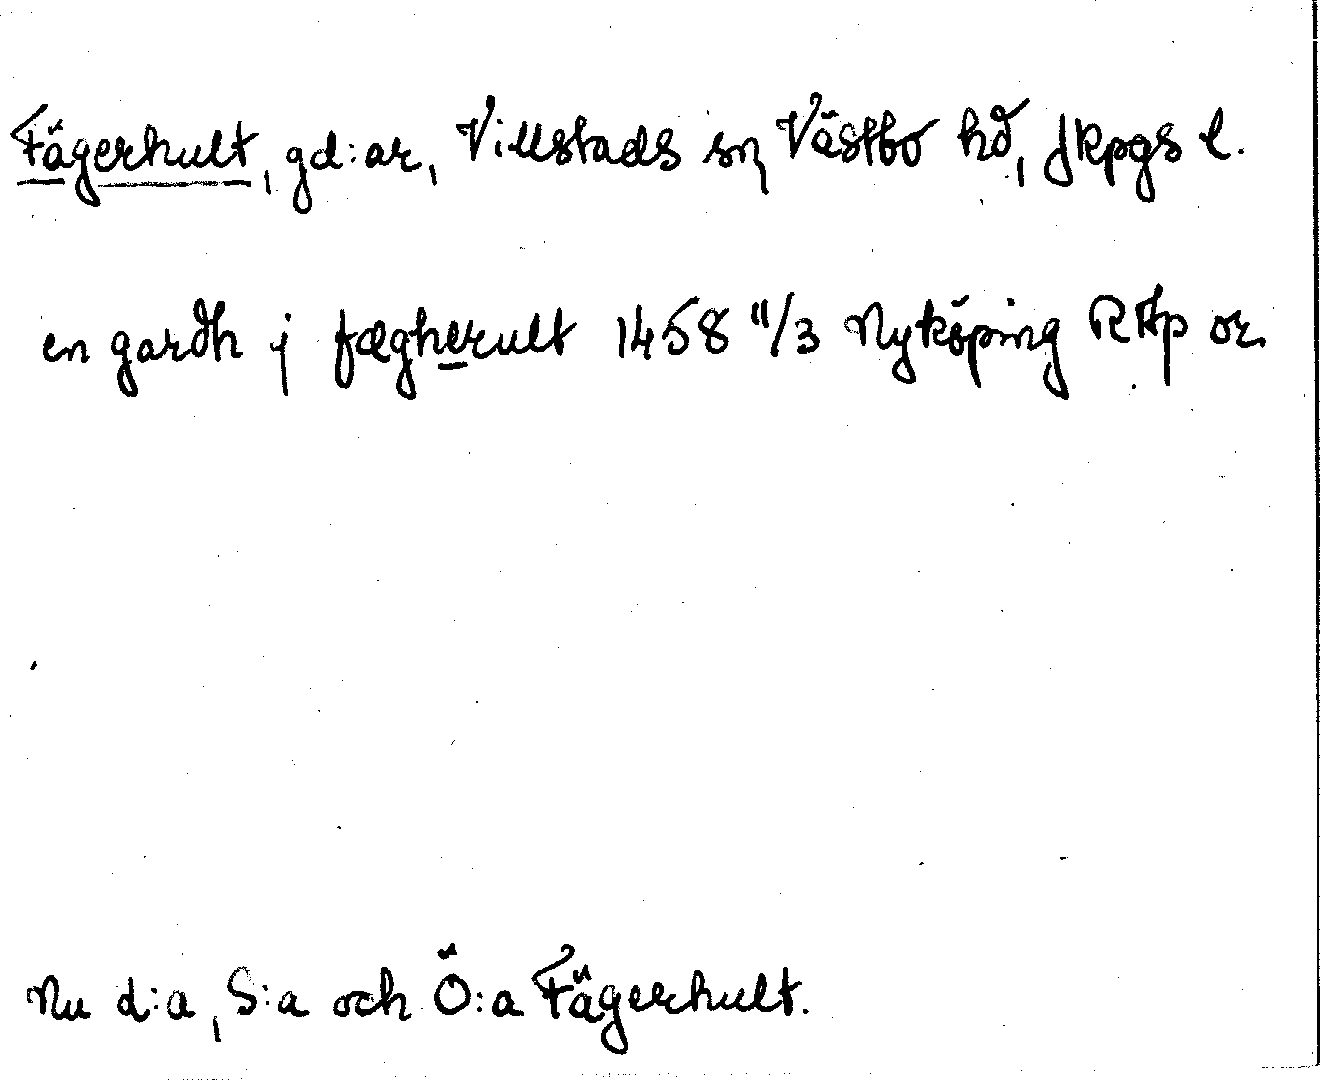 Fägerhult, gd:ar, Villstads sn Västbo hd, Jkpgs l.
en gardh j fægherult 1458 11/3 Nyköping RAp or.
Nu d:a, S:a och Ö:a Fägerhult.